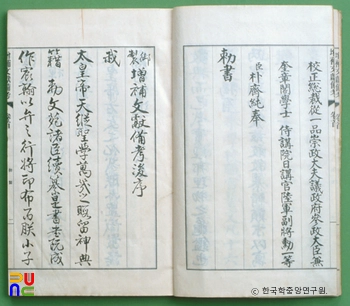 校正總裁從一品崇政大夫議政府參政大臣兼
奎章閣學士 侍講院日講官陸軍副將勳一等
臣朴齊純奉
勅書
御製增補文獻備考後序
我
太皇帝天縱聖學萬幾之暇留神典
籍 勅文苑諸臣續纂皇書書既成
作宸翰以弁之行將印布乃朕小子
© 한국학중앙연구원.